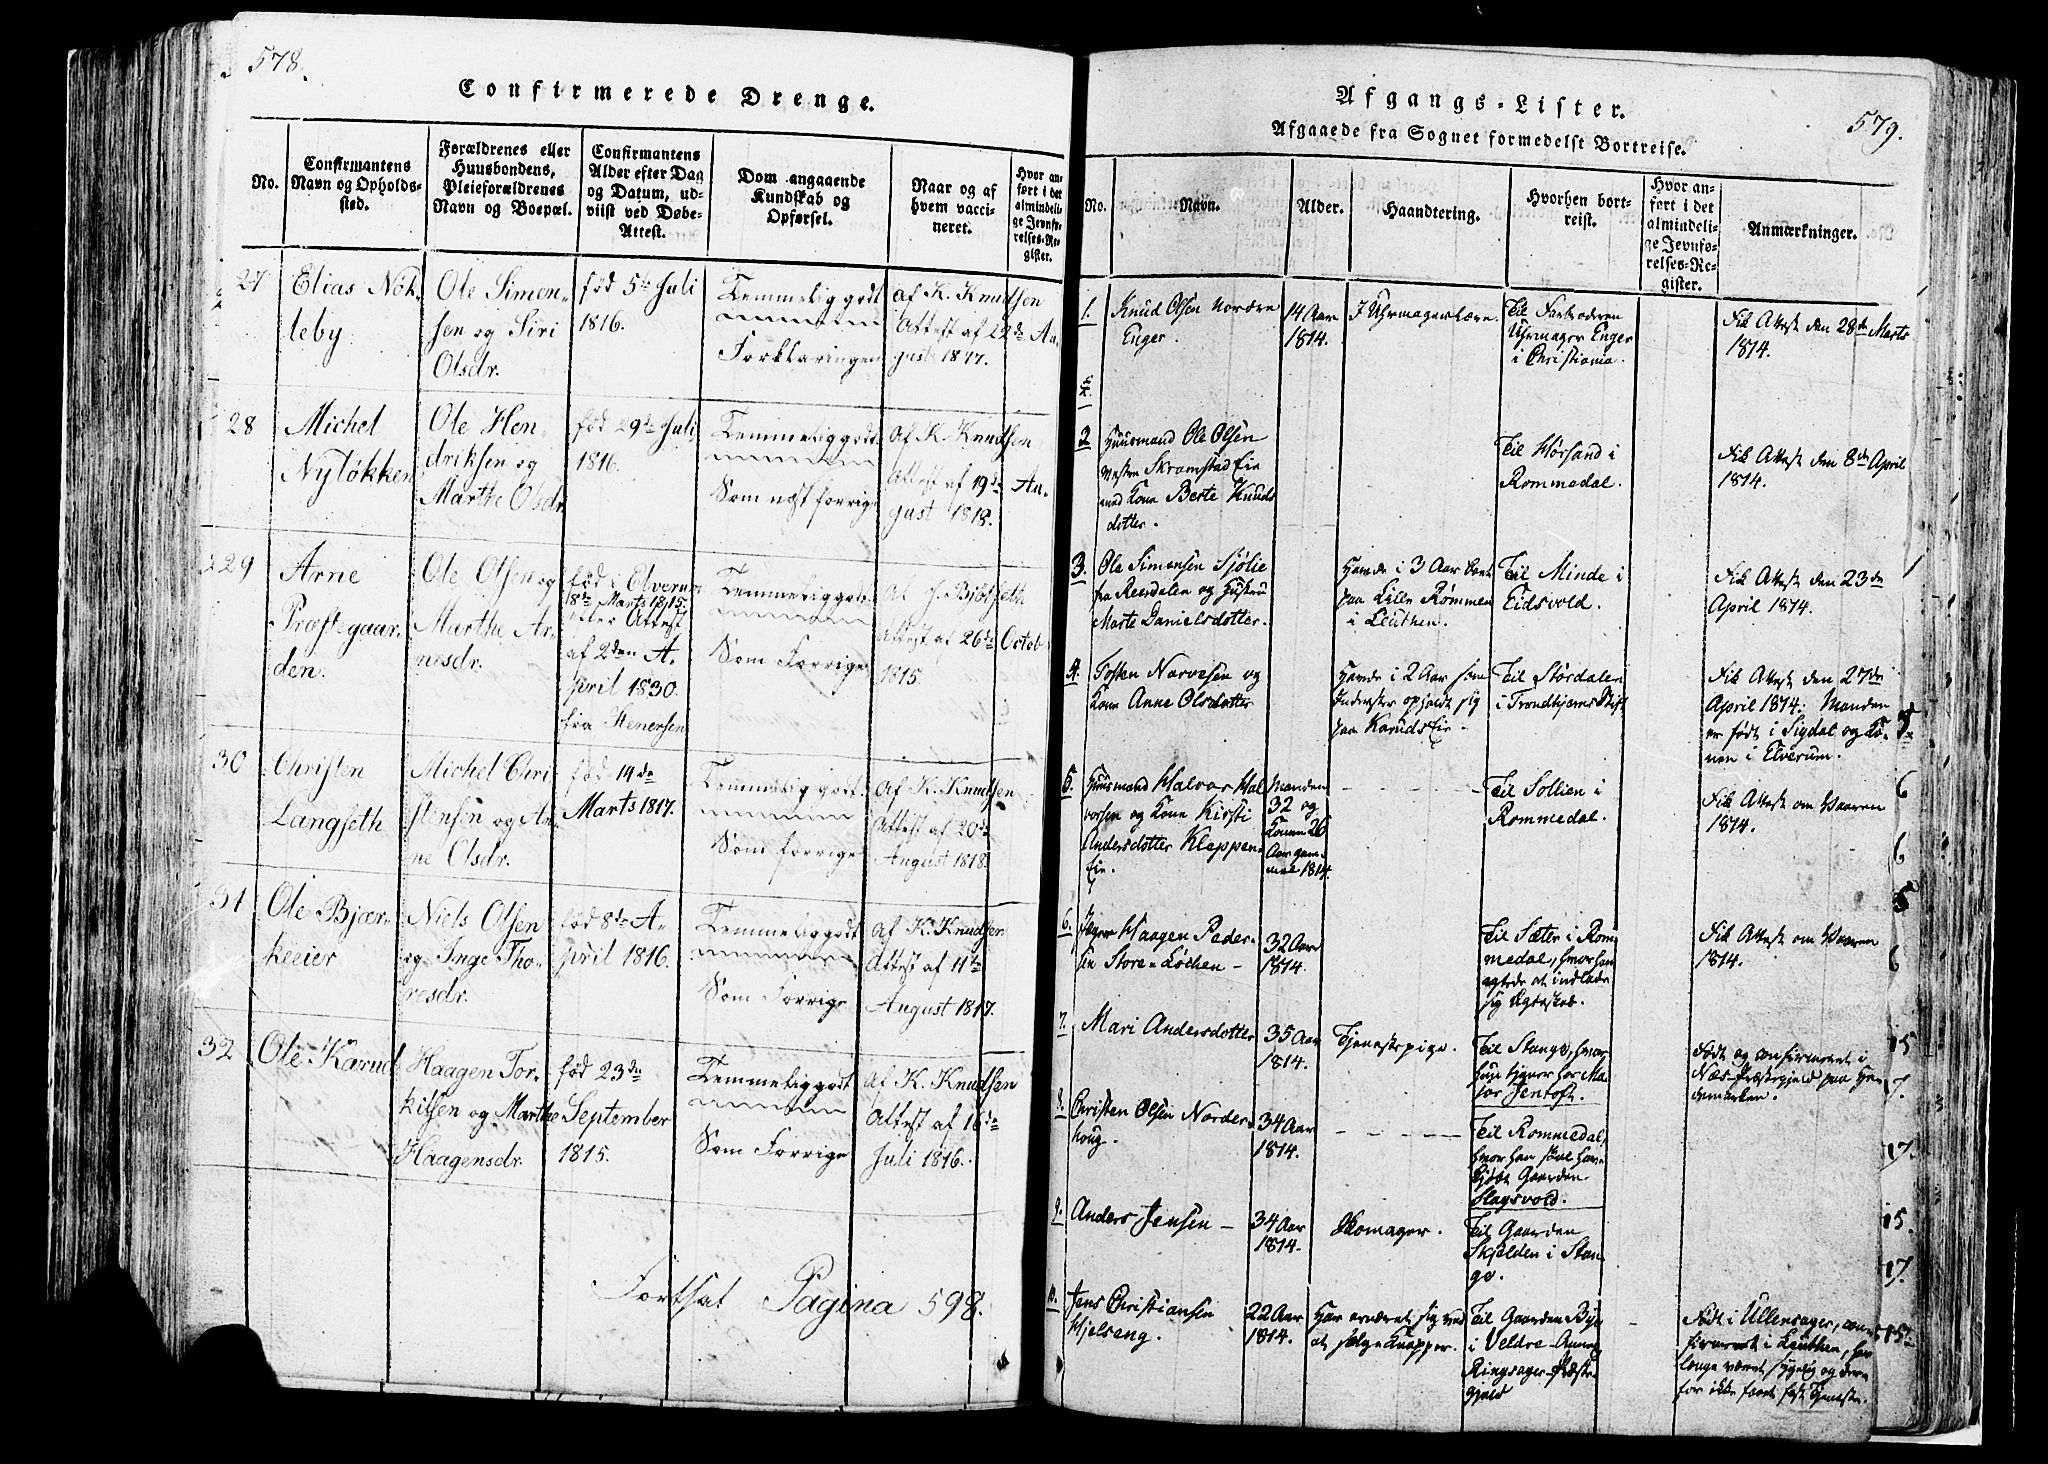 578.
Confirmerede Drenge.
No.
Confirmantens
Navn og Opholds-
sted.
Forældrenes eller
Huusbondens,
Pleieforældrenes
Navn og Boepæl.
Confirmantens
Alder efter Dag
og Datum, ud-
viist ved Døbe-
Attest.
Dom angaaende
Kundskab og
Opførsel.
Naar og af
hvem vacci-
neret.
Hvor an-
ført i det
almindeli-
ge Jevnfø-
relses-Re-
gister.
27
Elias Nök-
leby
Ole Simen-
sen og Siri
Olsdr.
fød 5te Juli
1816.
Temmelig godt
Forklaringen
af K. Knudsen
Attest af 22de Au-
gust 1817.
28
Michel
Nylökken
Ole Hen
driksen og
Marthe Olsdr.
fød 29de Juli
1816.
Temmelig godt
Som næst forrige
af K. Knudsen
Attest af 19de Au-
gust 1818.
29
Arne
Præstegaar-
den.
Ole Olsen og
Marthe Ar-
nesdr.
fød i Elverum
18de Marts 1815.
efter Attest
af 2den A-
pril 1830.
fra
Temmelig godt
Som Forrige
Af Björseth
Attest af 26de Octob
1815.
30
Christen
Langseth
Michel Chri
stensen og An-
ne Olsdr.
fød 14de
Marts 1817.
Temmelig godt
Som forrige
af K. Knudsen
Attest af 20de
August 1818.
31
Ole Bjær-
keeier
Niels Olsen
og Inge Tho-
resdr.
fød 8de A-
pril 1816.
Temmelig godt
Som Forrige
af K. Knudsen
Attest af 11te
August 1817.
32
Ole Karud
Haagen Tor-
kilsen og Marthe
Haagensdr.
fød 23de
September
1815.
Temmelig godt
Som Forrige
af K. Knudsen
Attest af 16de
Juli 1816.
Fortsat Pagina 598.
579.
Afgangs-Lister.
Afgaaede fra Sognet formedelst Bortreise.
No.
Navn.
Alder.
Haandtering.
Hvorhen bort-
reist.
Hvor an-
ført i det
almindeli-
ge Jevnfø-
relses-Re-
gister.
Anmærkninger.
1.
Knud Olsen Nordre
Enger.
14 Aar
1814.
I Uhrmagerlære
Til Farbroderen
Uhrmager Enger
i Christiania.
Fik Attest den 28de Marts
1814.
2
Huusmand Ole Olsen
Vestre Skramstad Eie
med Kone Berte Knuds
dotter.
Til Hørsand i
Rommedal.
Fik Attest den 8de April
1814.
3.
Ole Simensen Sjølie
fra Rendalen og Hustru
Marte Danielsdotter.
Havde i 3 Aar boet
paa Lille Rømmen
i Leuthen.
Til Minde i
Eidsvold.
Fik Attest den 23de
April 1814.
4.
Tosten Narvesen og
Kone Anne Olsdotter
Havde i 2 Aar som
Inderster opholdt sig
paa Karuds Eie.
Til Størdalen
i Trondhjems Stift
Fik Attest den 27de
April 1814. Manden
er født i Sigdal og Ko-
nen i Elverum.
5.
Huusmand Halvor Hal
vorsen og Kone Kirsti
Andersdotter Kleppen-
Eie.
Manden
32 og
Konen 26
Aar gam-
mel 1814.
Til Sollien i
Rommedal.
Fik Attest om Vaaren
1814.
6.
Haagen Peder-
sen Store-Løchen
32 Aar
1814.
Til Sæter i Rom
medal, hvor han
agtede at indlade
sig Ægteskab.
Fik Attest om Vaaren
1814.
7.
Mari Andersdotter
35 Aar
1814.
Tjenestepige.
Til Stange, hvor
hun tjener hos Ma-
jor Jentoft.
Født og confirmeret i
Næs Præstegjeld paa He-
demarken.
8.
Christen Olsen Norder-
houg.
34 Aar
1814.
Til Rommedal,
hvor han skal have
kjøbt Gaarden
Slagsvold.
9.
Anders Jensen
34 Aar
1814.
Skomager.
Til Gaarden
Skjelden i Stan-
ge.
10.
Jens Christiansen
Hjelseng.
22 Aar
1814.
Har ernæret sig ved
at sælge Knapper.
Til Gaarden Bye
i Veldre Annex
Ringsager Præste-
gjeld
Født i Ullensager, con-
firmeret i Leuthen, har
længe været sygelig og der-
for ikke faaet fast Tjeneste.
6
6
5
6
15
7.
17.
15.
17.
15